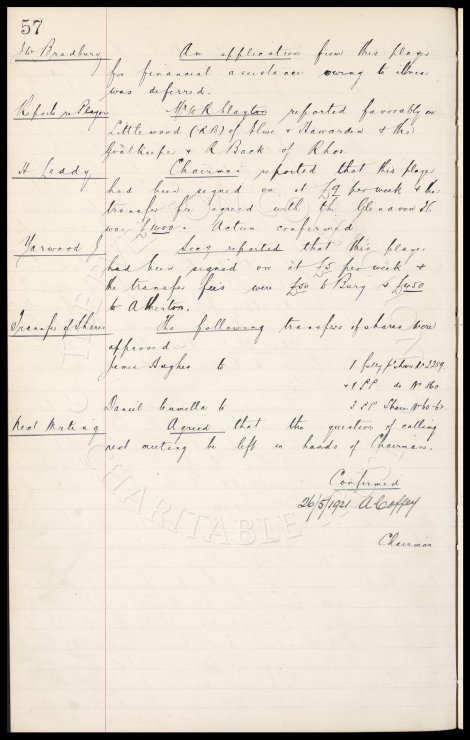 57
Wm Bradbury An application from this player
for financial assistance owing to illness
was deferred.
Reports re Players Mr W R Clayton reported favorably on
Littlewood (RB) of & Hawarden & the
Goalkeeper & R Back of Rhos.
H Leddy Chairman reported that this player
had been signed on at £9 per week & the
transfer fee agreed with the Glenavon FC
was £1000. Action confirmed
Yarwood J Secy reported that this player
had been signed on at £5 per week &
the transfer fees were £50 to Bury & £450
to Atherton.
Transfer of Shares The following transfers of shares were
approved:-
James Hughes to 1 fully pd share No 2259
& 1 P.P. do No 860
Daniel Cumella to 3 P.P Shares No 60-62
Next Meeting Agreed that the question of calling
next meeting be left in hands of Chairman.
Confirmed
26/5/1921 A Coffey
Chairman
CHARITABLE